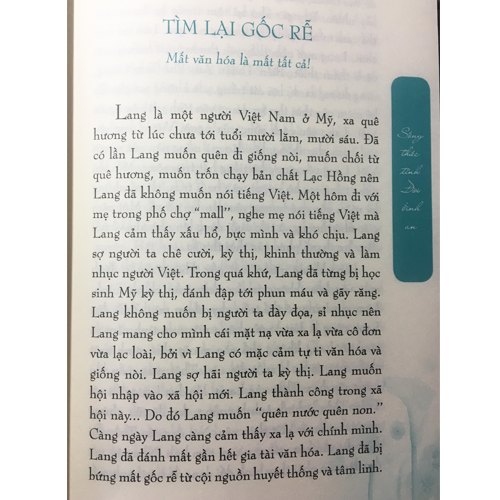 TÌM LẠI GỐC RỄ
Mất văn hóa là mất tất cả!
Lang là một người Việt Nam ở Mỹ, xa quê
hương từ lúc chưa tới tuổi mười lăm, mười sáu. Đã
có lần Lang muốn quên đi giống nòi, muốn chối từ
quê hương, muốn trốn chạy bản chất Lạc Hồng nên
Lang đã không muốn nói tiếng Việt. Một hôm đi với
mẹ trong phố chợ “mall”, nghe mẹ nói tiếng Việt mà
Lang cảm thấy xấu hổ, bực mình và khó chịu. Lang
sợ người ta chê cười, kỳ thị, khinh thường và làm
nhục người Việt. Trong quá khứ, Lang đã từng bị học
sinh Mỹ kỳ thị, đánh đập tới phun máu và gãy răng.
Lang không muốn bị người ta đày đọa, sỉ nhục nên
Lang mang cho mình cái mặt nạ vừa xa lạ vừa cô đơn
vừa lạc loài, bởi vì Lang có mặc cảm tự ti văn hóa và
giống nòi. Lang sợ hãi người ta kỳ thị. Lang muốn
hội nhập vào xã hội mới. Lang thành công trong xã
hội này... Do đó Lang muốn “quên nước quên non.”
Càng ngày Lang càng cảm thấy xa lạ với chính mình.
Lang đã đánh mất gần hết gia tài văn hóa. Lang đã bị
bứng mất gốc rễ từ cội nguồn huyết thống và tâm linh.
Sống
thức
tỉnh
Đời
bình
an